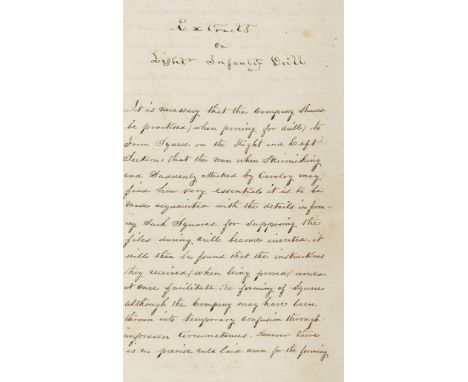 Extracts
on
Light Infantry Drill
It is necessary that the Company should
be practised (when proving for drill) to
Form Square on the Right and Left
Section; that the men when Skirmishing
and Suddenly attacked by Cavalry may
find how very essential it is to be
made acquainted with the details in form
ing Such Squares for Supposing the
files during drill become inverted, it
will then be found that the instructions
they received (when being proved) would
at once facilitate the forming of Square
although the Company may have been
thrown into temporary confusion through
unforseen Circumstances. However there
is no precise rule laid down for the forming